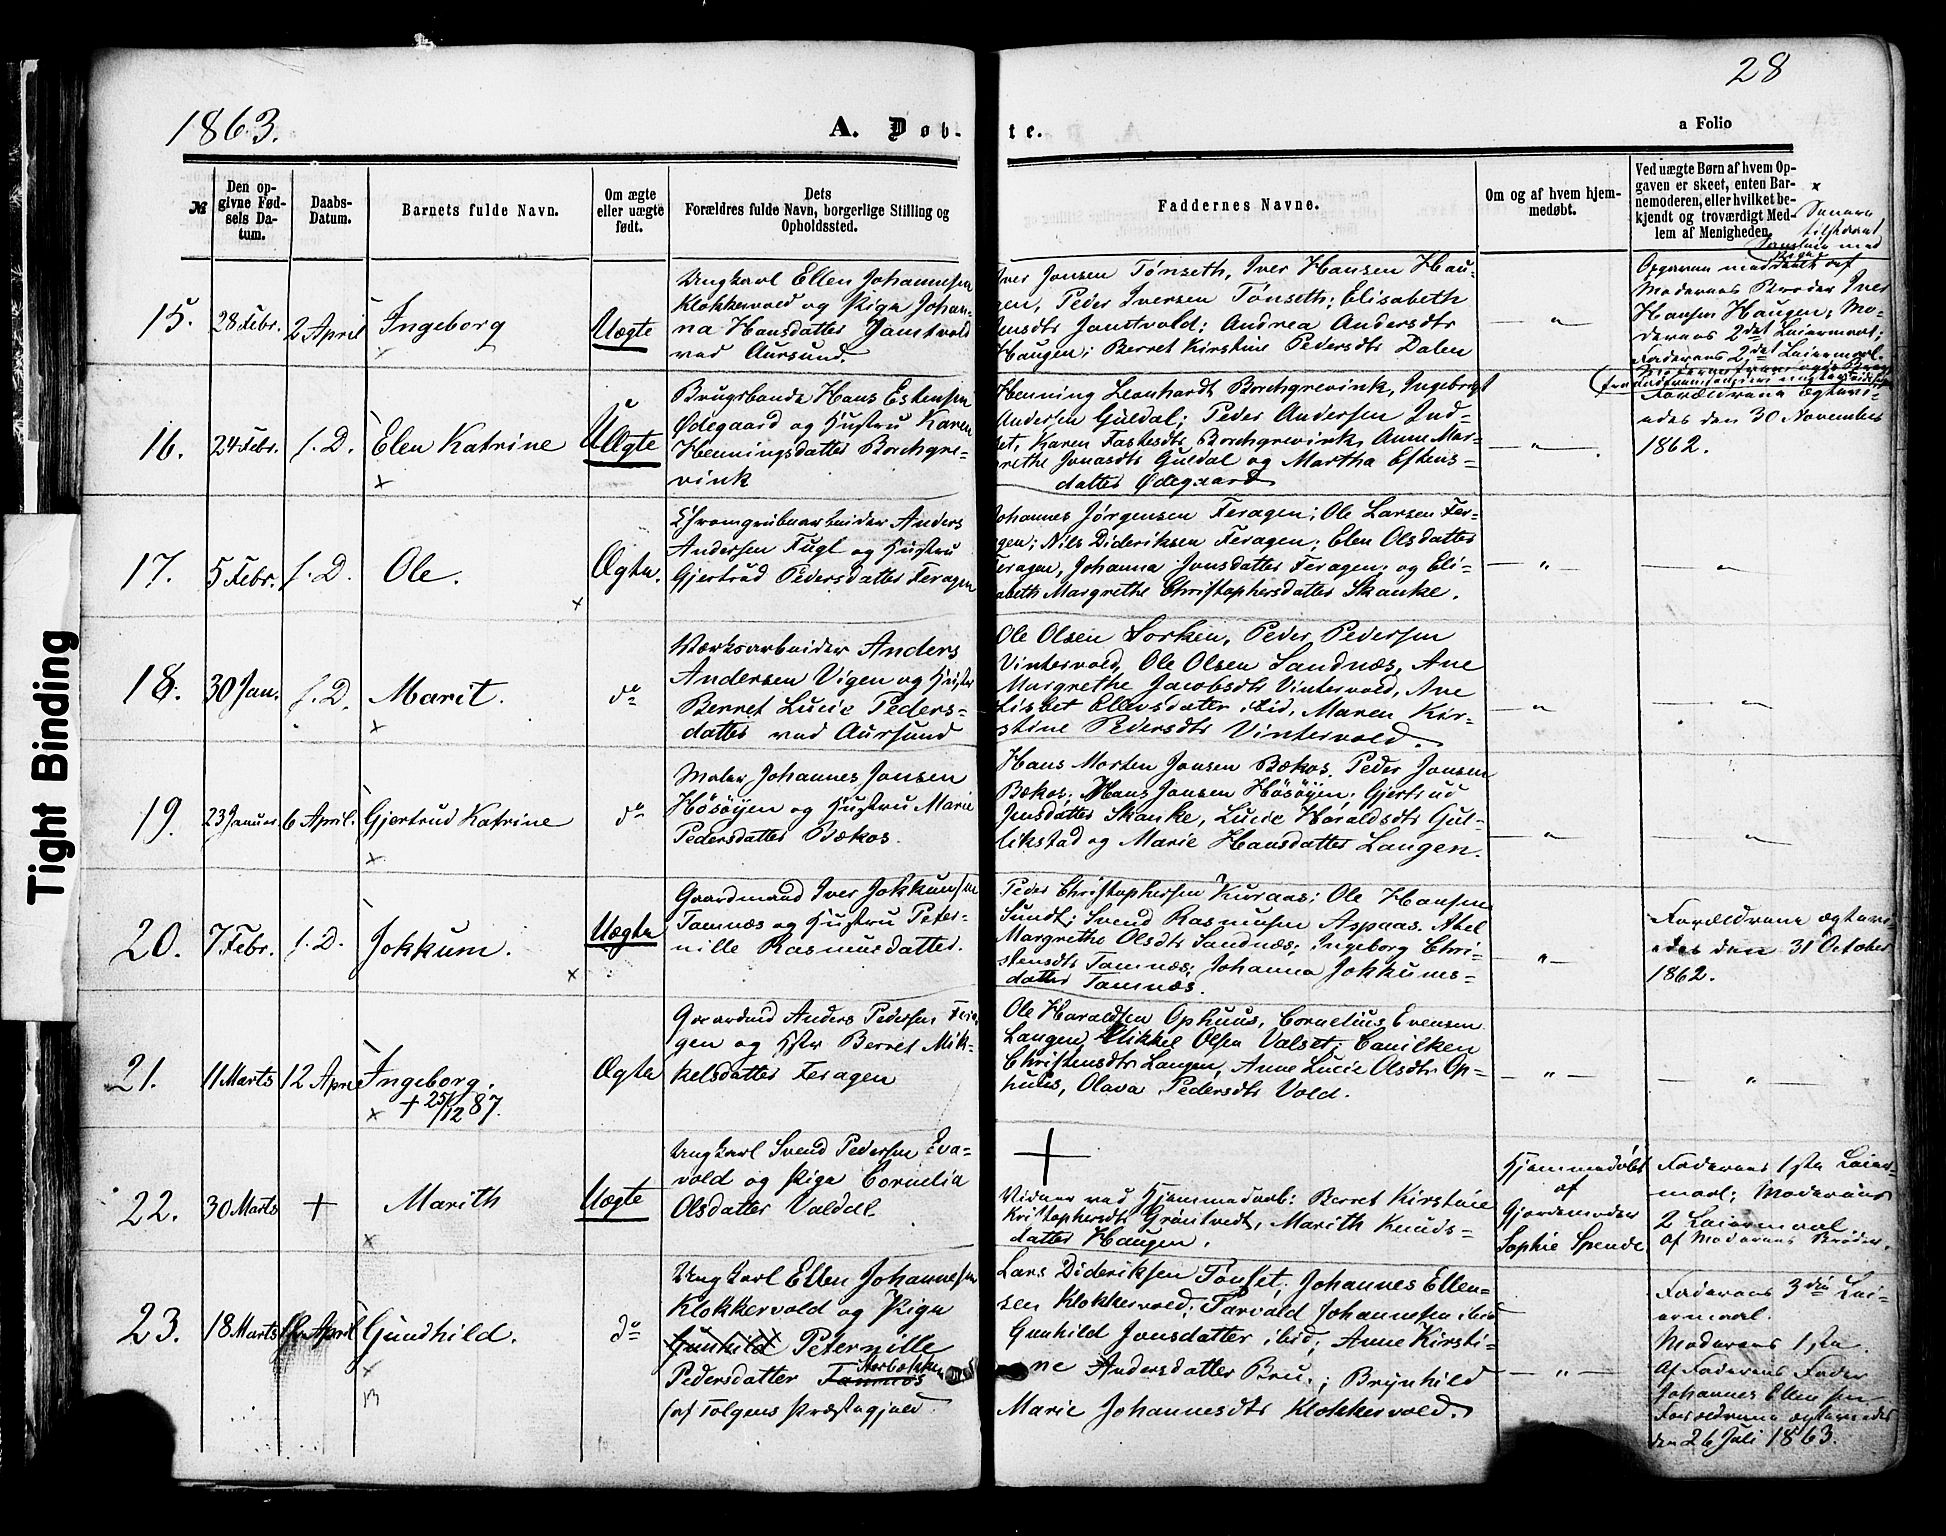 28
1863.
A. Døb-
te.
a Folio
№
Den op-
givne Fød-
sels Da-
tum.
Daabs-
Datum.
Barnets fulde Navn.
Om ægte
eller uægte
født.
Dets
Forældres fulde Navn, borgerlige Stilling og
Opholdssted.
Faddernes Navne.
Om og af hvem hjem-
medøbt.
Ved uægte Børn af hvem Op-
gaven er skeet, enten Bar-
nemoderen, eller hvilket be-
kjendt og troværdigt Med-
lem af Menigheden.
15.
28 Febr.
2 April
Ingeborg
Uægte
Ungkarl Ellen Johannesen
Klokkervold og Pige Johan-
na Hansdatter Jamtvold
ved Aursund.
Iver Jonsen Tønseth, Iver Hansen Hau-
gen, Peder Iversen Tønseth; Elisabeth
Jensdtr Jamtvold; Andrea Andersdtr
Haugen; Berret Kirstine Pedersdtr Dalen
"
Opgaven meddeelt af
Moderens Broder Iver
Hansen Haugen; Mo-
derens 2det Leiermaal;
Faderens 2det Leiermaal.
16.
24 Febr.
s. D.
Elen Katrine
Uægte
Brugsbonde Hans Estensen
Ødegaard og Hustru Karen
Henningsdatter Borchgre-
vink
Henning Leonhardt Borchgrevink, Ingebrigt
Andersen Guldal; Peder Andersen Ind-
set, Karen Fastesdtr Borchgrevink, Anne Mar-
grethe Jonasdtr Guldal og Martha Estens-
datter Ødegaard
"
Forældrene ægtevi-
edes den 30 November
1862.
17.
5 Febr.
s. D.
Ole.
Ægte.
Chromgrubearbeider Anders
Andersen Fugl og Hustru
Gjertrud Pedersdatter Feragen
Johannes Jørgensen Feragen; Ole Larsen Fer-
agen; Nils Dideriksen Feragen; Elen Olsdatter
Feragen, Johanna Jonsdatter Feragen; og Eli-
sabeth Margrethe Christophersdatter Skanke.
"
"
18.
30 Jan.
s. D.
Marit.
do
Værksarbeider Anders
Andersen Vigen og Hustr
Berret Lucie Peders-
datter ved Aursund
Ole Olsen Sorken, Peder Pedersen
Vintervold, Ole Olsen Sandnæs, Ane
Margrethe Jacobsdtr Vintervold, Ane
Lisbet Ellevsdatter Eid, Maren Kir-
stine Pedersdtr Vintervold.
"
"
19.
23 Januar
6 April.
Gjertrud Katrine
do
Maler Johannes Jonsen
Høsøyen og Hustru Marie
Pedersdatter Bækos.
Hans Morten Jonsen Bækos, Peder Jonsen
Bækos; Hans Jonsen Høsøyen; Gjertrud
Jensdatter Skanke, Lucie Haraldsdtr Gul-
likstad og Marie Hansdatter Langen.
"
"
20.
7 Febr.
s. D.
Jokkum.
Uægte
Gaardmand Iver Jokkumsen
Tamnæs og Hustru Peter-
nille Rasmusdatter.
Peder Christophersen Kuraas; Ole Hansen
Sundt; Svend Rasmusen Aspaas. Abel
Margrethe Olsdtr Sandnæs; Ingeborg Chri-
stensdtr Tamnæs; Johanna Jokkums-
datter Tamnæs.
"
Forældrene ægtevi-
edes den 31 October
1862.
21.
11 Marts
12 April
Ingeborg.
+ 25/12 87.
Ægte
Gaardmd Anders Pedersen Fera-
gen og Hstr Berret Mik-
kelsdatter Feragen
Ole Haraldsen Ophuus, Cornelius Evensen
Langen, Mikkel Olsen Valset; Canilken
Christensdtr Langen, Anne Lucie Olsdtr Op-
huus, Olava Pedersdtr Vold.
"
"
22.
30 Marts
+
Marith
Uægte
Ungkarl Svend Pedersen Eva-
vold og Pige Cornelia
Olsdatter Valdal.
+
Vidner ved Hjemmedaab: Berret Kirstine
Kristophersdtr Grøntvedt, Marith Knuds-
datter Haugen.
Hjemmedøbt
af
Gjordemoder
Sophie Spende
Faderens 1ste Leier-
maal; Moderens
2 Leiermaal.
Af Moderens Broder.
23.
18 Marts
12 April
Gundhild.
do
Ungkarl Ellen Johannesen
Klokkervold og Pige
Gunhild Peternille
Pedersdatter Tamnæs
af Tolgens Præstegjeld.
Lars Dideriksen Tønset; Johannes Ellen-
sen Klokkervold; Tarvald Johannesen ibid
Gunhild Jonsdatter ibid; Anne Kirsti-
ne Andersdatter Bru.; Brynhild
Marie Johannesdtr Klokkervold.
"
Faderens 3die Lei-
ermaal.
Moderens 1ste.
Af Faderens Fader
Johannes Ellensen
Forældrene ægteviedes
den 26 Juli 1863.
Tight Binding